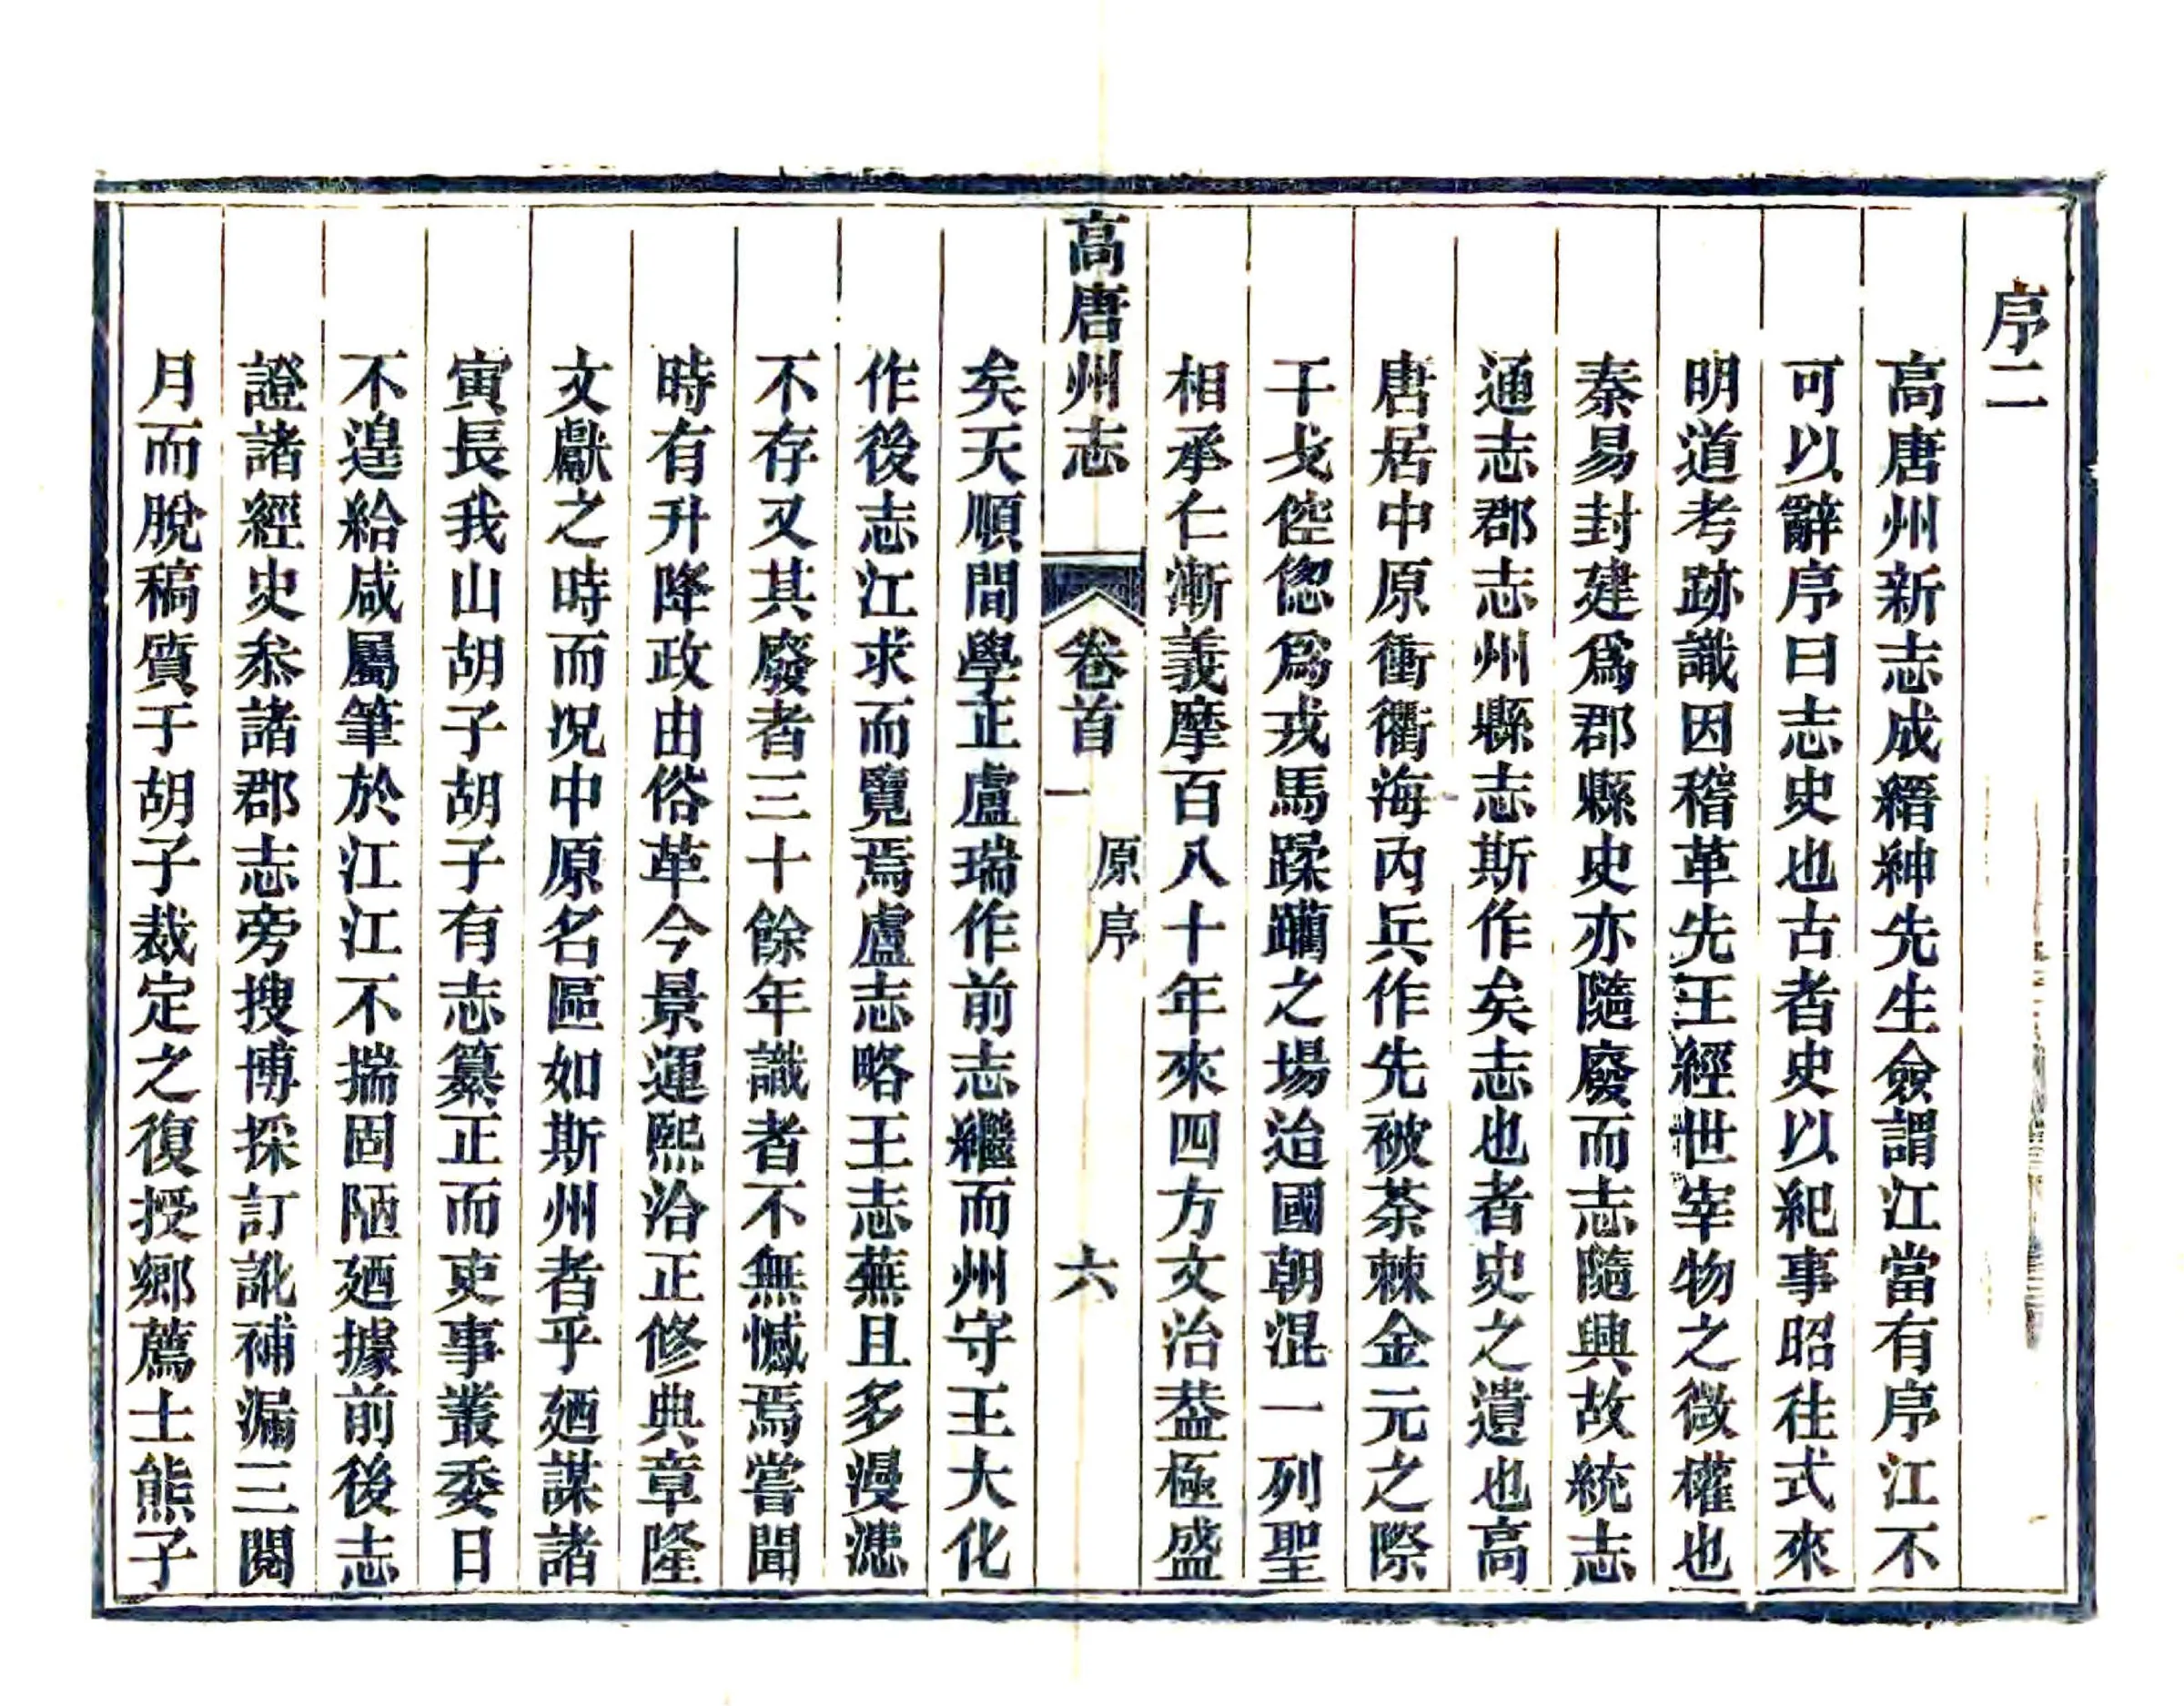 序二
高唐州新志成縉紳先生僉謂江當有序江不
可以辭序曰志史也古者史以紀事昭往式來
明道考跡識因稽革先王經世宰物之微權也
秦易封建爲郡縣史亦隨廢而志隨興故統志
通志郡志州縣志斯作矣志也者史之遺也高
唐居中原衝衢海內兵作先被荼棘金元之際
干戈倥偬爲戎馬蹂躪之場迨國朝混一列聖
相承仁漸義摩百八十年來四方文治葢極盛
高唐州志 卷首一 原序 六
矣天順間學正盧瑞作前志繼而州守王大化
作後志江求而覽焉盧志略王志蕪且多漫漶
不存又其廢者三十餘年識者不無憾焉嘗聞
時有升降政由俗革今景運熙洽正修典章隆
文獻之時而况中原名區如斯州者乎廼謀諸
寅長我山胡子胡子有志纂正而吏事叢委日
不遑給咸屬筆於江江不揣固陋廼據前後志
證諸經史叅諸郡志旁搜博採訂訛補漏三閱
月而脫稿質于胡子裁定之復授鄉薦士熊子